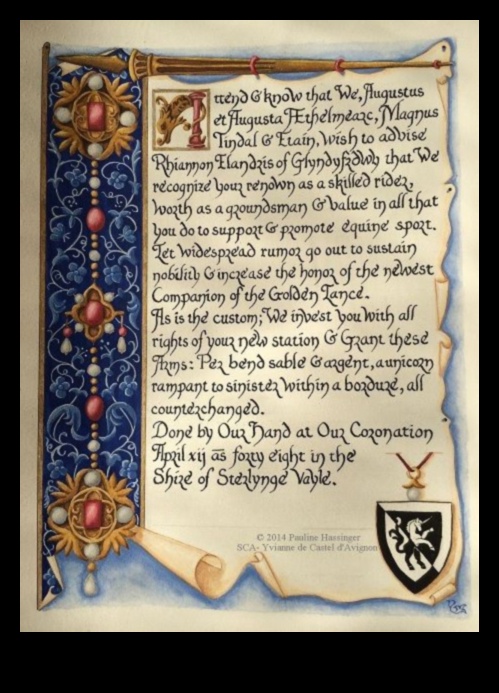 Attend & know that We, Augustus
et Augusta Æthelmearc, Magnus
Tindal & Etain, Wish to advise
Rhiannon Elandris of Glyndyfrdwy that We
recognize your renown as a skilled rider,
worth as a groundsman & value in all that
you do to support & promote equine sport.
Let widespread rumor go out to sustain
nobility & increase the honor of the newest
Companion of the Golden Lance.
As is the custom; We invest you with all
rights of your new station & Grant these
Arms: Per bend sable & argent, a unicorn
rampant to sinister within a bordure, all
counterchanged.
Done by Our Hand at Our Coronation
April xij as forty eight in the
Shire of Sterlynge Vayle.
© 2014 Pauline Hassinger
SCA- Yvianne de Castel d'Avignon